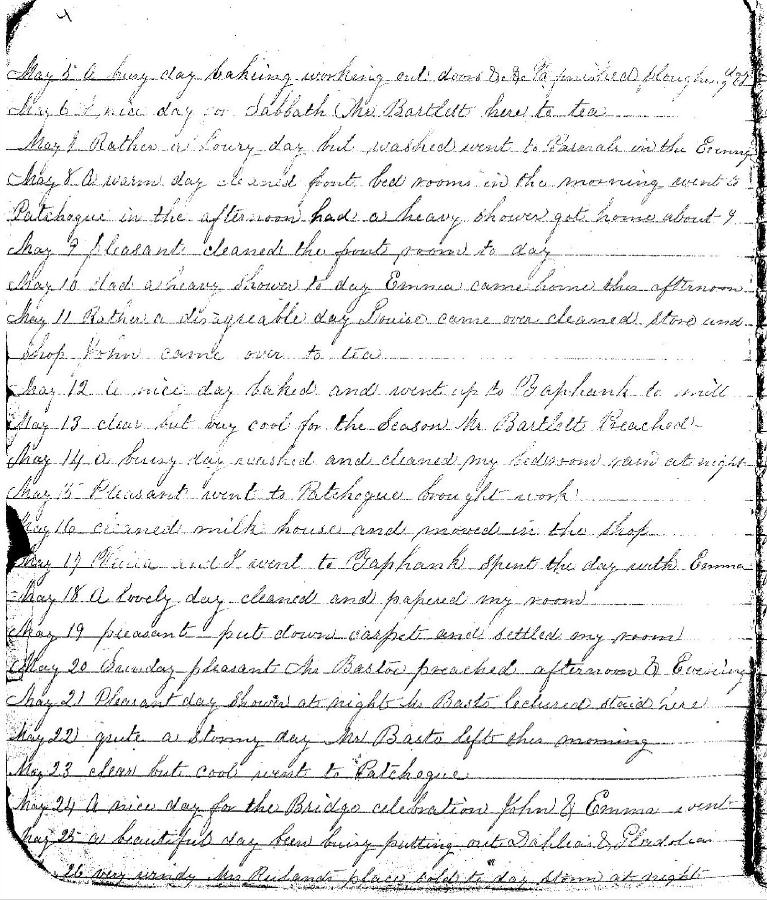 4
May 5 A busy day baking working out doors &c &c Pa finished ploughing
May 6 A nice day for Sabbath Mr Bartlett here to tea
May 7 Rather a loury day but washed went to in the Evening
May 8 A warm day cleaned front bed rooms in the morning went to
Patchogue in the afternoon had a heavy shower got home about 9
May 9 pleasant cleaned the front room to day
May 10 Had a heavy Shower to day Emma came home this afternoon
May 11 Rather a disagreable day Louise came over cleaned store and
shop John came over to tea
May 12 A nice day baked and went up to Yaphank to mill
May 13 clear but very cool for the Season Mr Bartlett Preached
May 14 A busy day washed and cleaned my bedroom rain at night
May 15 Pleasant went to Patchogue brought work
May 16 cleaned milk house and moved in the shop
May 17 and I went to Yaphank spent the day with Emma
May 18 A lovely day cleaned and papered my room
May 19 pleasant put down carpet and settled my room
May 20 Sunday pleasant Mr Basto preached afternoon & Evening
May 21 Pleasant day Shower at night Mr Basto lectured staid here
May 22 quite a Stormy day Mr Basto left this morning
May 23 clear but cool went to Patchogue
May 24 A nice day for the Bridge celebration John & Emma went
May 25 a beautiful day been busy putting out Dahlias & Gladolias
26 very windy Mrs Rulands place sold to day storm at night